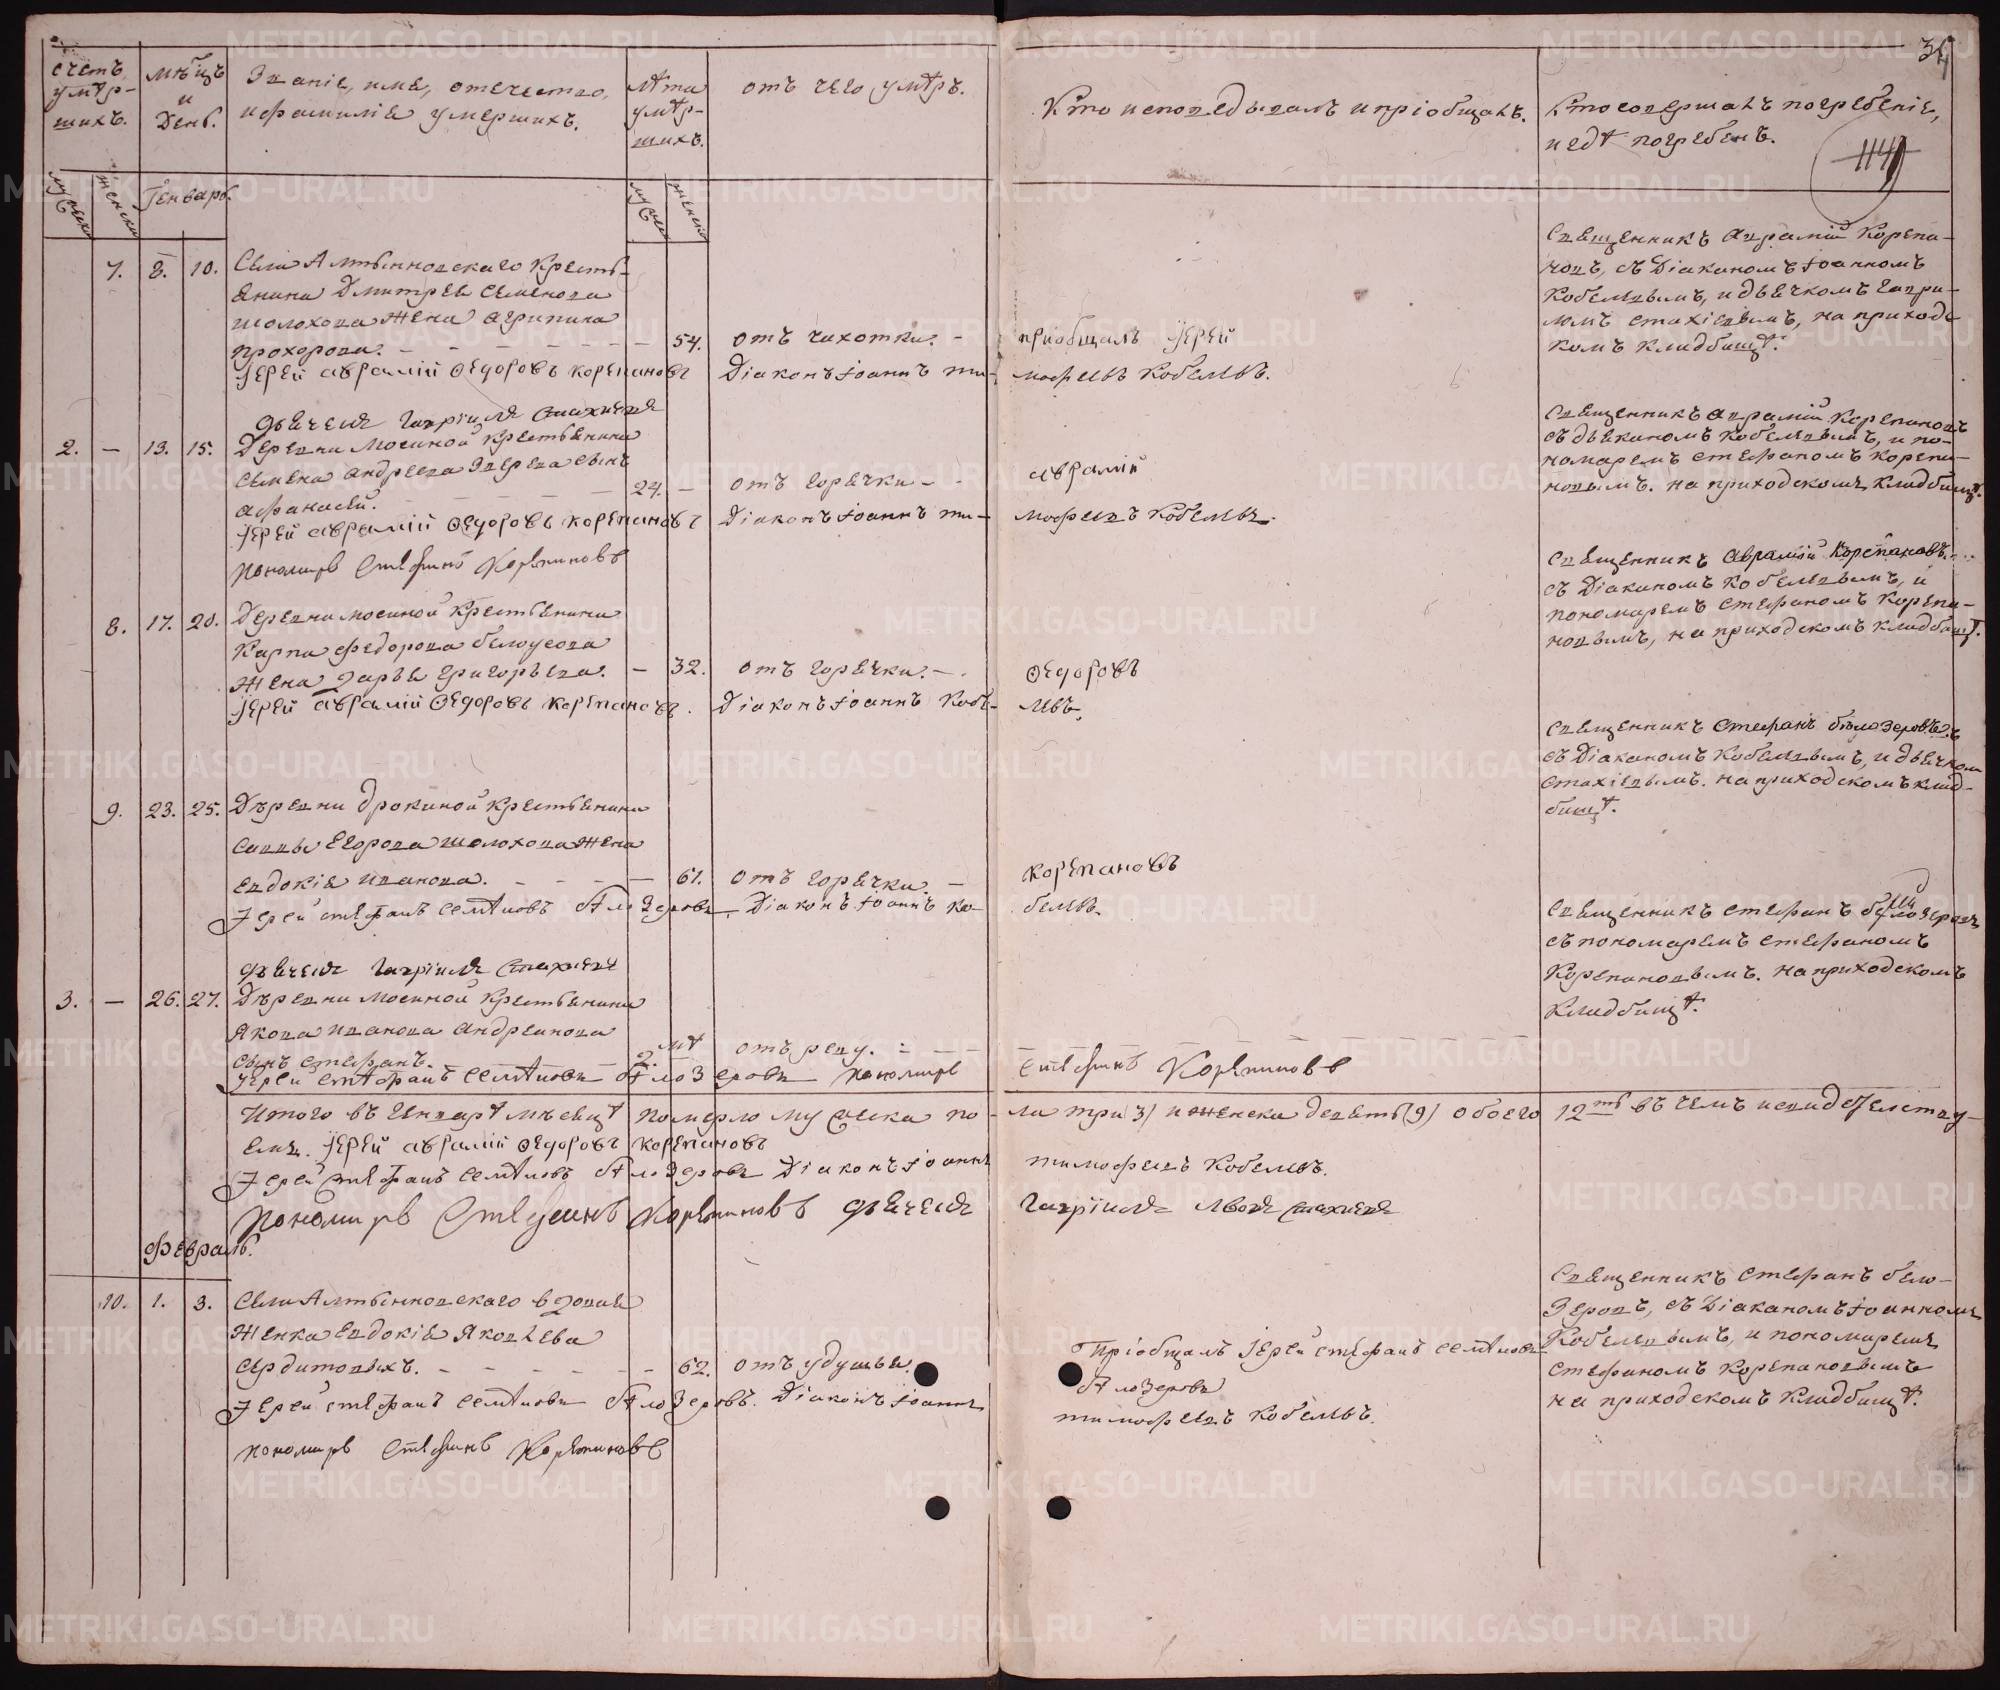 34
114
счетъ умѣршихъ.
мѣсяцъ и День.
Званіе, имя, отечество, и фамилія умершихъ.
лѣта умѣршихъ.
отъ чего умѣръ.
Кто исповедывалъ и пріобщалъ.
Кто совершалъ погребеніе, и гдѣ погребенъ.
мужеска
женска
Генварь.
мужеска
женска
7. 8. 10.
Села Алтынновскаго Кресть-
янина Дмитрея Семенова
Шолохова жена Агрипина
Прохорова. — 54. отъ чихотки. — пріобщалъ Іерей
Іерей Аврамій Ѳедоровъ Корепановъ Діаконъ Іоаннъ Ти- мофеевъ Кобелевъ.
Священникъ Аврамій Корепа-
новъ, съ Діакономъ Іоанномъ
Кобелевымъ, и дьячкомъ Гаври-
ломъ Стахіевымъ, на приходс-
комъ кладбищѣ.
дьячекъ Гавріилъ Стахиевъ
2. — 13. 15. Деревни Мосиной крестьянина
Семена Андреева Зверева сынъ
Афанасей. 24. — отъ горячки — Аврамій
Іерей Аврамій Ѳедоровъ Корепановъ Діаконъ Іоаннъ Ти- мофеевъ Кобелевъ.
пономарь Стефанъ Корепановъ
Священникъ Аврамій Корепановъ
съ дьякономъ Кобелевымъ, и по-
номаремъ Стефаномъ Корепа-
новымъ. на приходскомъ кладбищѣ.
8. 17. 20. Деревни Мосиной крестьянина
Карпа Федорова Белоусова
жена Дарья Григорьева. — 32. отъ горячки. — Ѳедоровъ
Іерей Аврамій Ѳедоровъ Корепановъ. Діаконъ Іоаннъ Кобе- левъ.
Священникъ Аврамій Корепановъ.
съ Діакономъ Кобелевымъ, и
пономаремъ Стефаномъ Корепа-
новымъ, на приходскомъ кладбищѣ.
9. 23. 25. Деревни Дрокиной крестьянина
Саввы Егорова Шолохова жена
Евдокія Иванова. — 61. отъ горячки. — Корепановъ
Іерей Стефанъ Семеновъ Бѣлозеровъ. Діаконъ Іоаннъ Ко- белевъ.
Священникъ Стефанъ Бѣлозеровъ
съ Діакономъ Кобелевымъ, и дьячком
Стахіевымъ. на приходскомъ клад-
бищѣ.
дьячекъ Гавріилъ Стахиевъ
3. — 26. 27. Деревни Мосиной крестьянина
Якова Иванова Андреянова
сынъ Стефанъ. 2. отъ реву.
Іерей Стефанъ Семеновъ Бѣлозеровъ пономарь Стефанъ Корепановъ
Священникъ Стефанъ Белозеровъ
съ пономаремъ Стефаномъ
Корепановымъ. на приходскомъ
кладбищѣ.
Итого въ Генварѣ мѣсяцѣ померло мужеска по- ла три (3) и женска девять (9) обоего 12ть въ чемъ и свидетельству-
емъ. Іерей Аврамій Ѳедоровъ Корепановъ
Іерей Стефанъ Семеновъ Бѣлозеровъ Діаконъ Іоаннъ Тимофеевъ Кобелевъ.
пономарь Стефанъ Корепановъ дьячекъ Гавріилъ Львовъ Стахиевъ
Февраль.
10. 1. 3. Села Алтынновскаго вдовая
женка Евдокія Яковлева
Сердитовыхъ. — 62. отъ удушья. Пріобщалъ Іерей Стефанъ Семеновъ
Бѣлозеровъ
Іерей Стефанъ Семеновъ Бѣлозеровъ. Діаконъ Іоаннъ Тимофеевъ Кобелевъ.
пономарь Стефанъ Корепановъ
Священникъ Стефанъ Бело-
зеровъ, съ Діакономъ Іоанномъ
Кобелевымъ, и пономаремъ
Стефаномъ Корепановымъ
на приходскомъ кладбищѣ.
METRIKI.GASO-URAL.RU